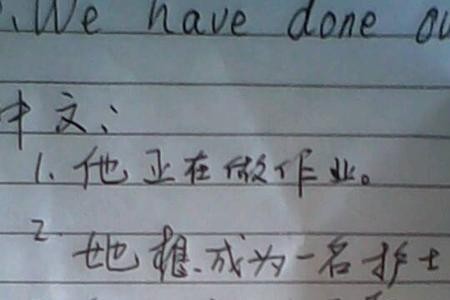 .We have done ou
中文:
1. 他正在做作业。
2. 她想成为一名护士